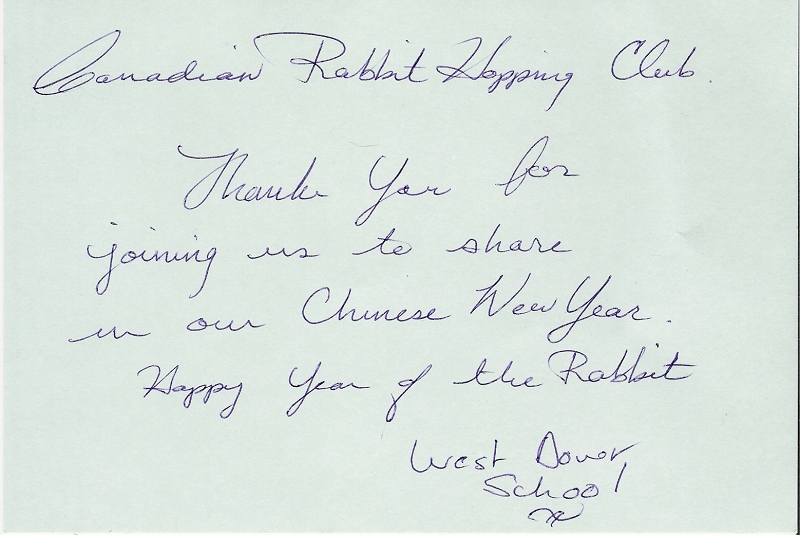 Canadian Rabbit Hopping Club.
Thank You for
joining us to share
in our Chinese New Year.
Happy Year of the Rabbit
West Dover
School